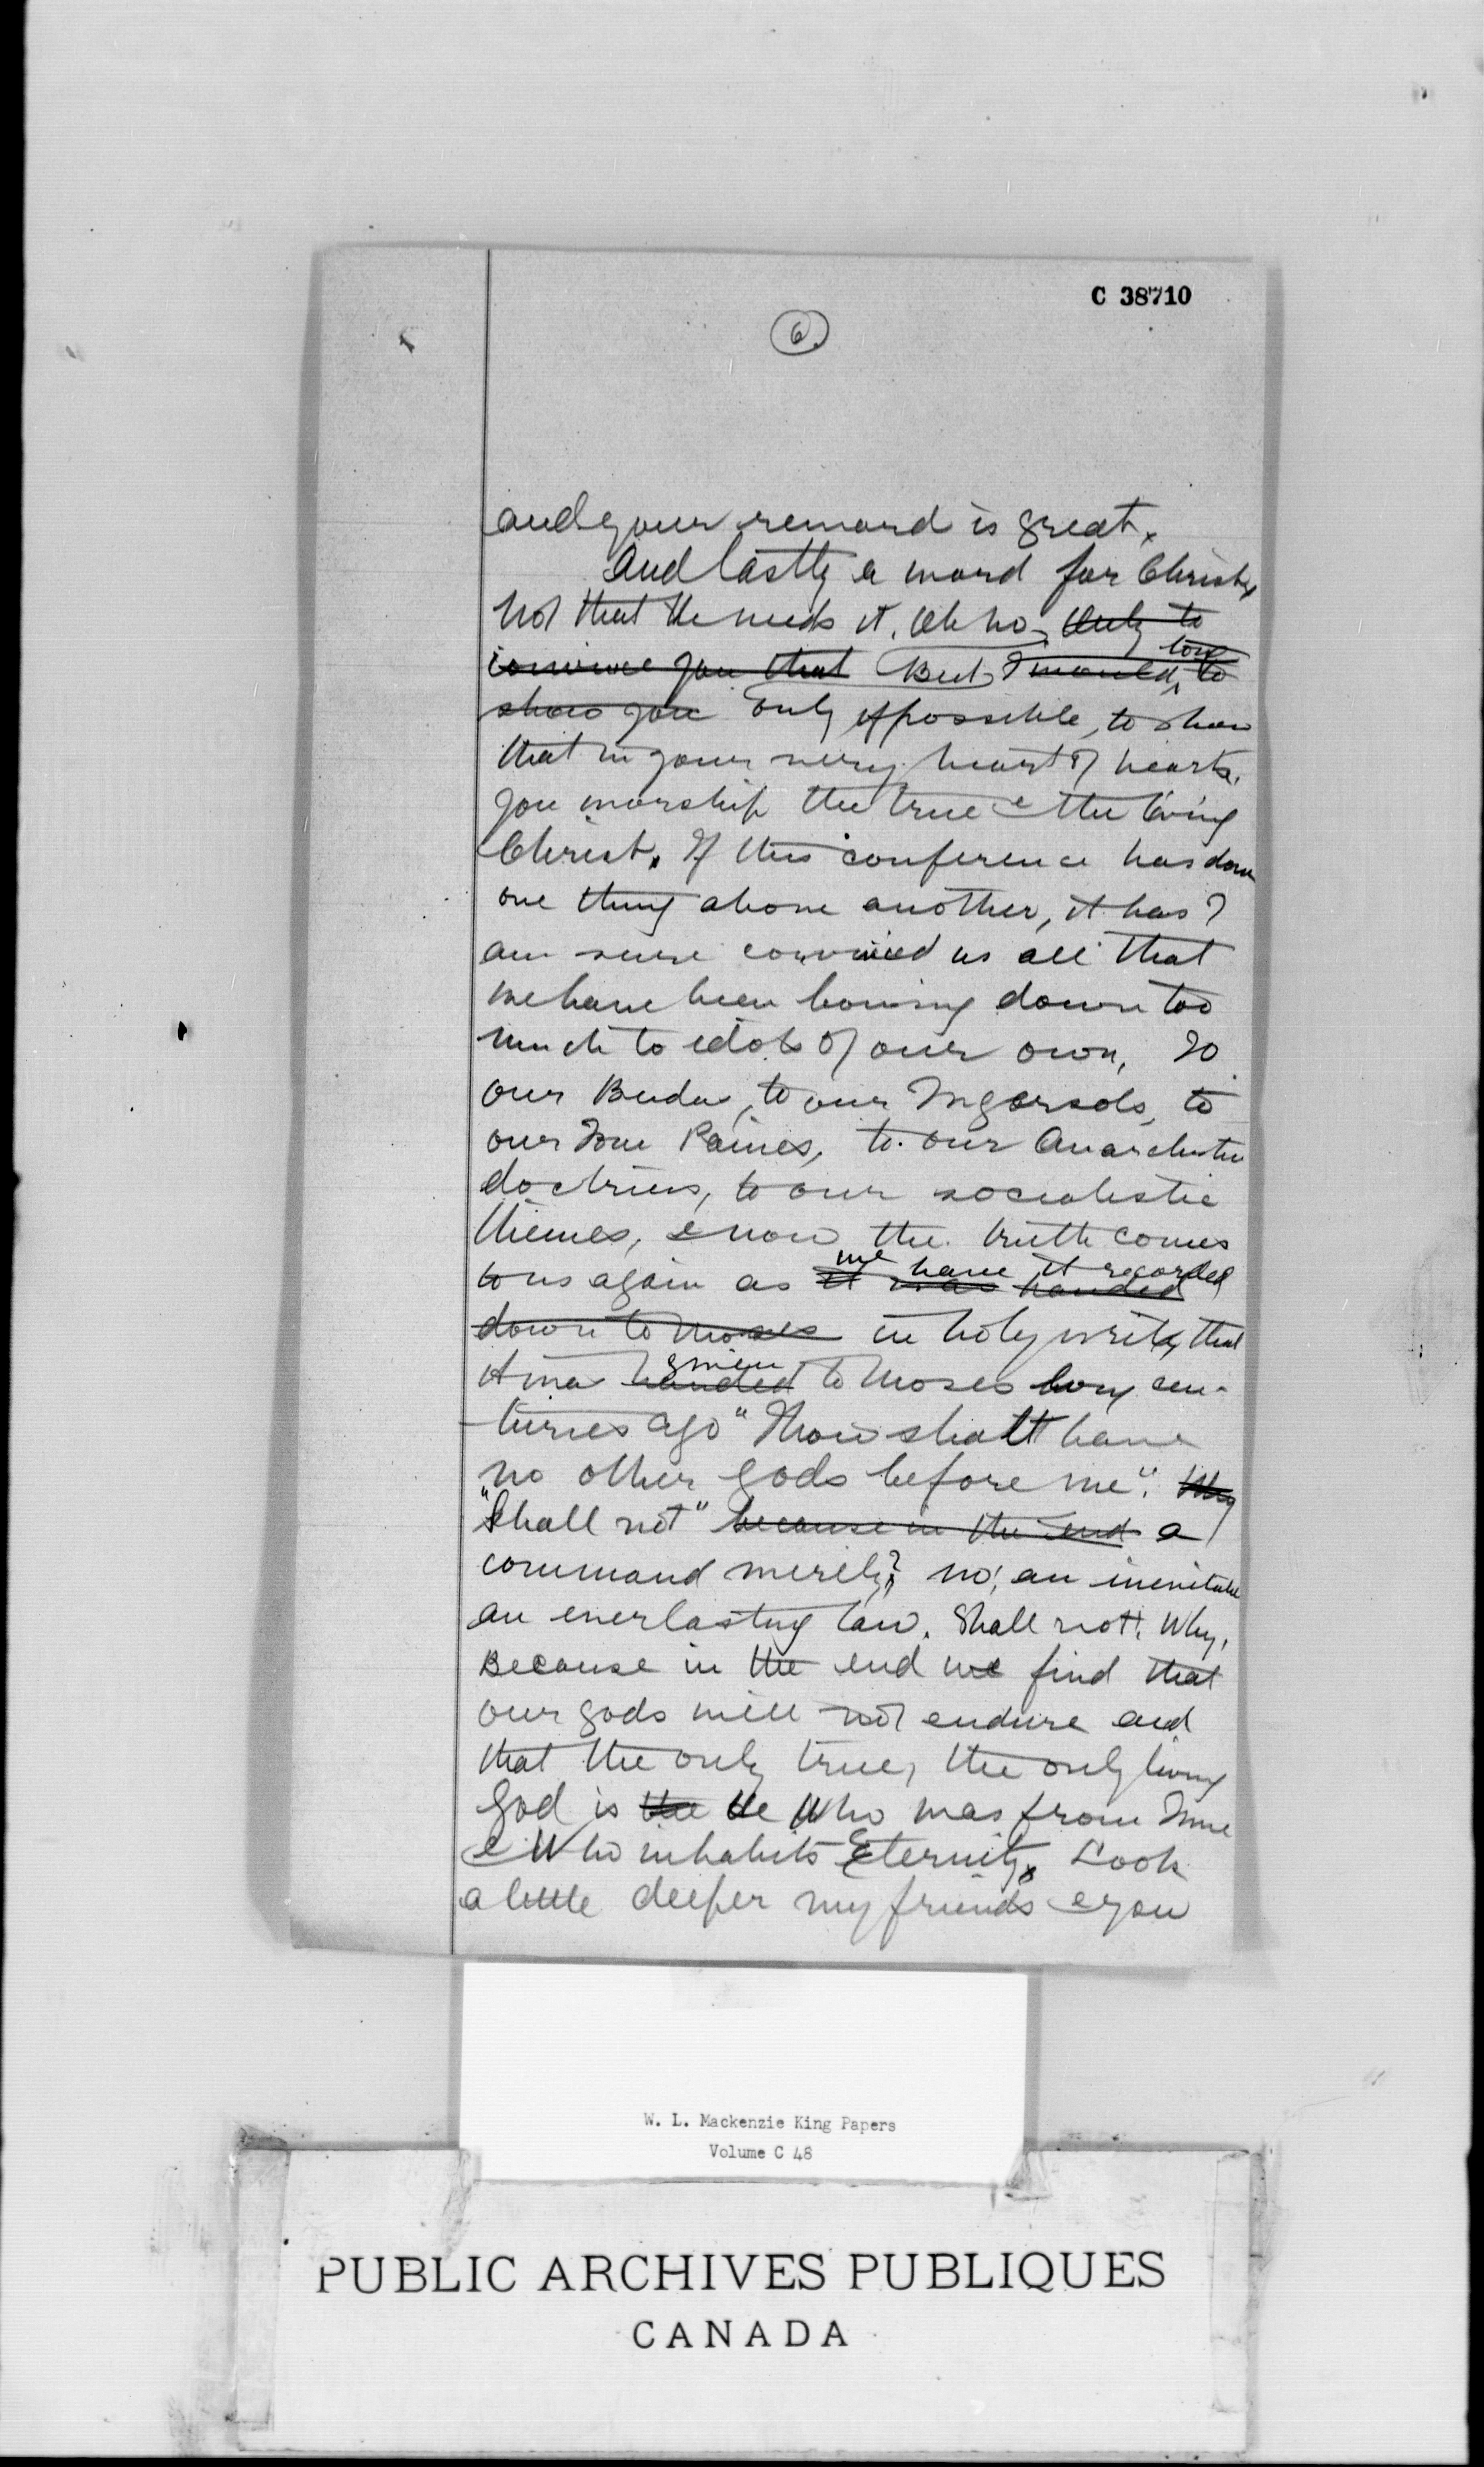 C 38710
6.
and your reward is great.
And lastly a word for Christ,
Not that He needs it. Oh no, Only to
convince you that But I would, love to
show you only if possible, to show
that in your very heart of hearts,
you worship the true & the living
Christ. If this conference has done
one thing above another, it has I
am sure convinced us all that
we have been bowing down too
much to idols of our own, To
our Budas, to our Ingersols, to
our Tom Paines, to our Anarchistic
doctrines, to our socialistic
themes, & now the truth comes
we have it recorded
to us again as it was handed
down to Moses in holy writ, that
given
it was handed to Moses long cen-
turies ago "Thou shalt have
no other gods before me". Why
"Shall not" because in the end a
command merely? no, an inevitable
an everlasting law. Shall not. Why,
Because in the end we find that
our gods will not endure and
that the only true, the only living
God is the He Who was from Time
& Who inhabits Eternity. Look
a little deeper my friends & you
W. L. Mackenzie King Papers
Volume C 48
PUBLIC ARCHIVES PUBLIQUES
CANADA